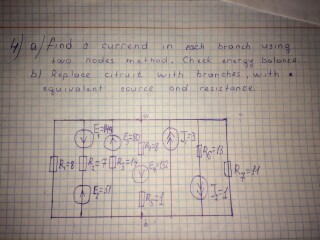 4) a) find a currend in each branch using
two nodes method. Check energy balance
b) Replace citruit with branches, with a
equivalent source and resistance
R₁=8
R₂=7
R₃=14
J=3
R₅=1
R₆=13
R₇=11
J=1